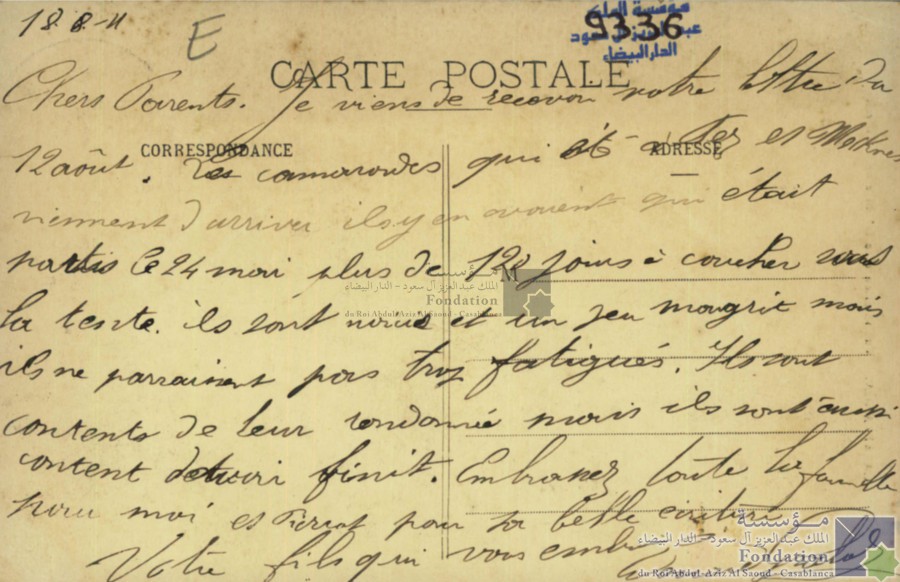 18 8-11
E
9336
مؤسسة الملك
عبد العزيز آل سعود
الدار البيضاء
CARTE POSTALE
Chers Parents. Je viens de recevoir votre lettre du
CORRESPONDANCE
ADRESSE
12 août. Les camarades qui été a Fez et Meknes
viennent d'arriver ils y en avaient qui était
partis le 24 mai plus de 120 jours à coucher sous
la tente. ils sont noirs et un peu maugrit mais
ils ne parraissent pas trop fatigués. Ils sont
contents de leur randonnée mais ils sont aussi
content detvoir finit. Embrassez toute la famille
pour moi et Pierrot pour sa belle ecriture
Votre fils qui vous
مؤسسة
الملك عبد العزيز آل سعود - الدار البيضاء
Fondation
du Roi Abdul-Aziz Al Saoud - Casablanca
M
مؤسسة
الملك عبد العزيز آل سعود - الدار البيضاء
Fondation
du Roi Abdul-Aziz Al Saoud - Casablanca